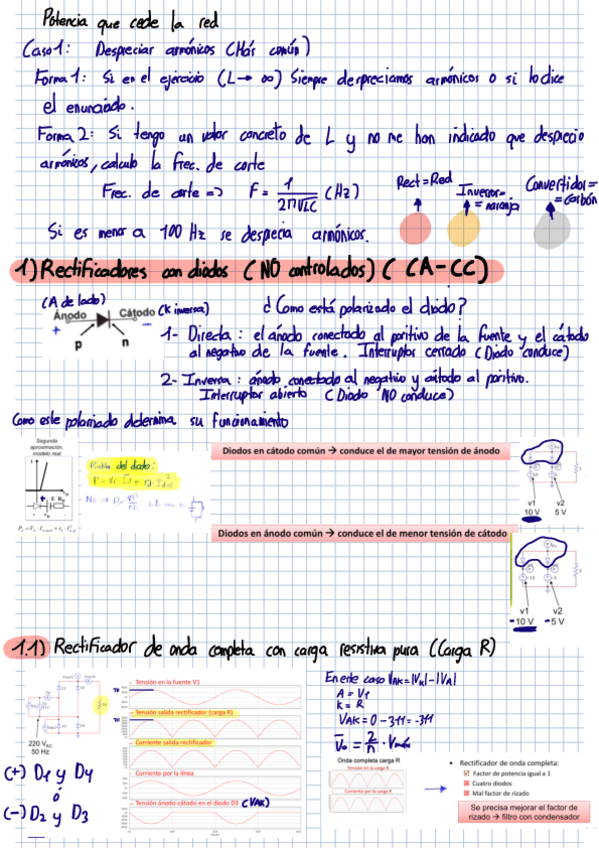 Potencia que cede la red
Caso 1: Despreciar armónicos (Más común)
Forma 1: Si en el ejercicio (L→ ∞) Siempre despreciamos armónicos o si lo dice
el enunciado.
Forma 2: Si tengo un valor concreto de L y no me han indicado que desprecio
armónicos, calculo la frec. de corte
Frec. de corte => F = 1 / 2π√LC (Hz)
Rect = Red
Inversor = naranja
Convertidor = carbón
Si es menor a 100 Hz se desprecia armónicos.
1) Rectificadores con diodos (NO controlados) ( CA - CC)
(A de lado)
Ánodo Cátodo (K inversa)
+ -
p n
¿Como está polarizado el diodo?
1- Directa: el ánodo conectado al positivo de la fuente y el cátodo
al negativo de la fuente. Interruptor cerrado (Diodo conduce)
2- Inversa: ánodo conectado al negativo y cátodo al positivo.
Interruptor abierto (Diodo NO conduce)
Como este polarizado determina su funcionamiento
Segunda
aproximación,
modelo real
del diodo:
Diodos en cátodo común → conduce el de mayor tensión de ánodo
v1 v2
10 V 5 V
Diodos en ánodo común → conduce el de menor tensión de cátodo
v1 v2
-10 V -5 V
1.1) Rectificador de onda completa con carga resistiva pura (Carga R)
220 VAC
50 Hz
(+) D1 y D4
ó
(-) D2 y D3
Tensión en la fuente V1
Tensión salida rectificador (carga R)
Corriente salida rectificador
Corriente por la línea
Tensión ánodo-cátodo en el diodo D3 (VAK)
En este caso VAK = |VK| - |VA|
A = V1
K = R
VAK = 0 - 311 = -311
V̄o = 2/π · Vmáx
Onda completa carga R
Tensión en la carga R
Corriente por la carga R
• Rectificador de onda completa:
Factor de potencia igual a 1
Cuatro diodos
Mal factor de rizado
Se precisa mejorar el factor de
rizado → filtro con condensador